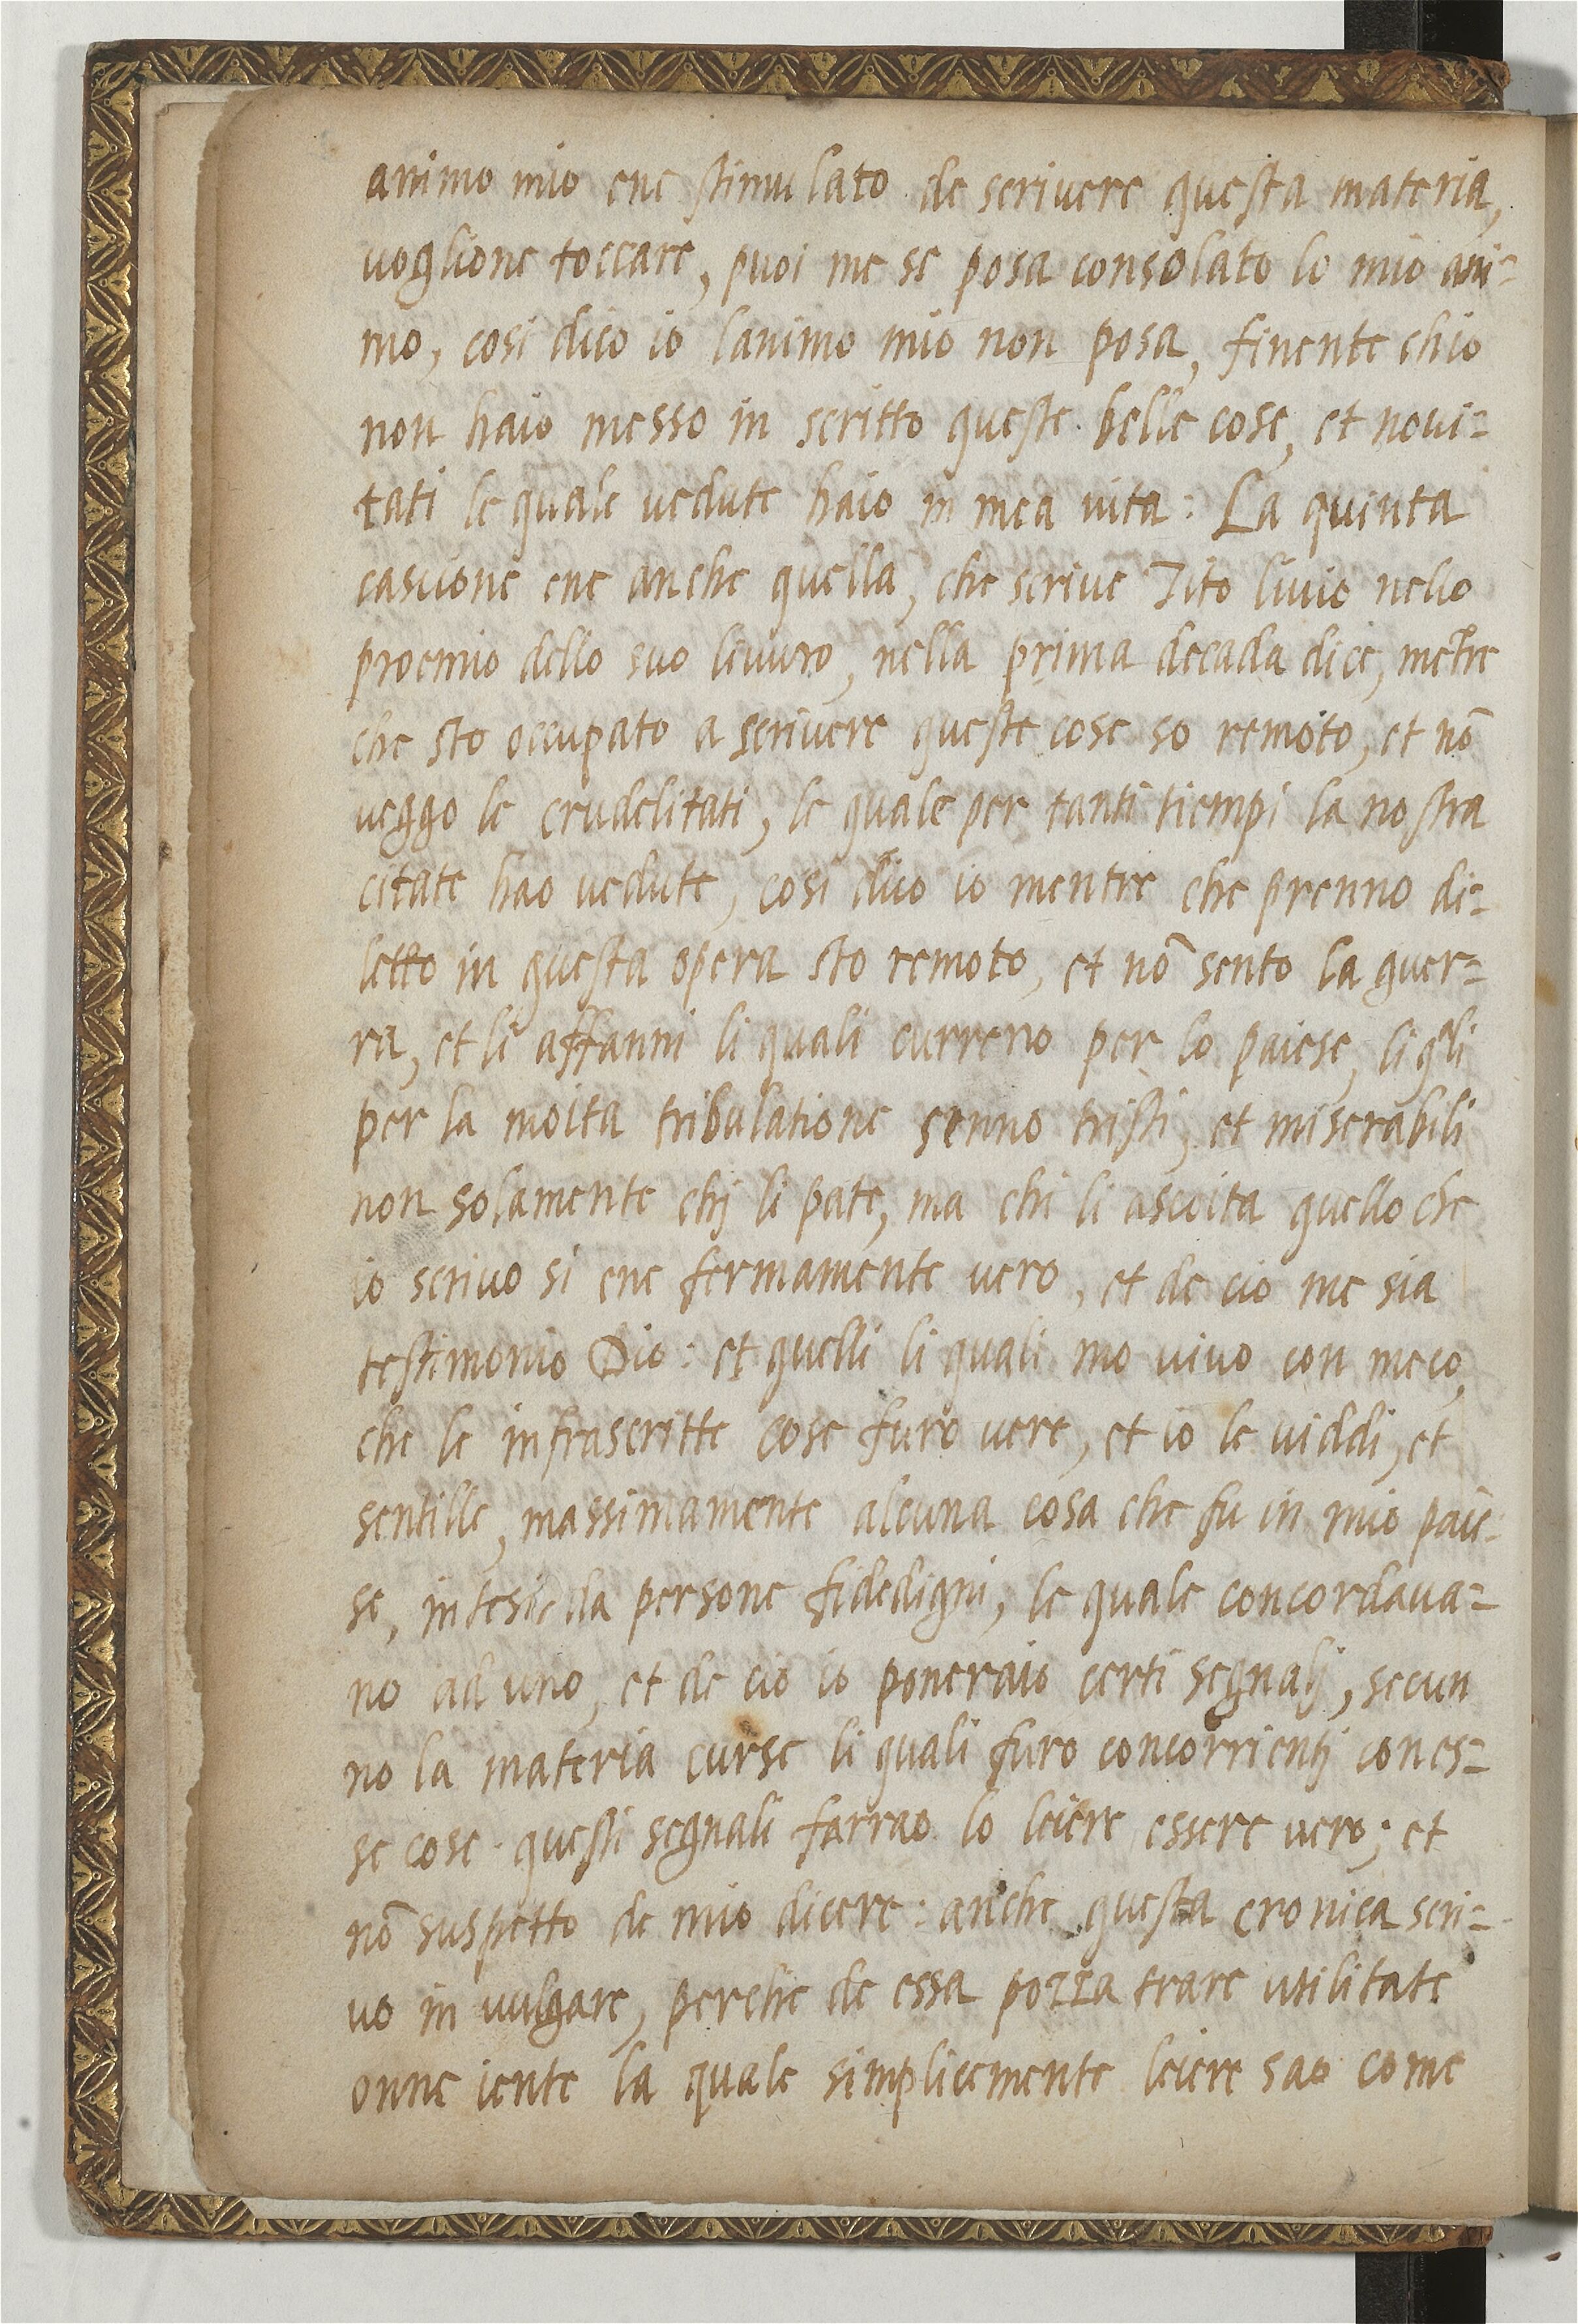 animo mio ene stimulato de scrivere questa materia,
voglione toccare, puoi me se posa consolato lo mio ani=
mo, cosi dico io lanimo mio non posa, finente chio
non haio messo in scritto queste belle cose, et novi=
tati le quale vedute haio in mea vita: La quinta
cascione ene anche quella, che scrive Tito livio nello
proemio dello suo livuro, nella prima decada dice, metre
che sto occupato a scrivere queste cose so remoto, et nō
veggo le crudelitati, le quale per tanti tiempi la nostra
citate hao vedute, cosi dico io mentre che prenno di=
letto in questa opera sto remoto, et nō sento la guer=
ra, et li affanni li quali curreno per lo paiese, li qli
per la moita tribulatione senno tristi, et miserabili
non solamente chj li pate, ma chi li ascoita quello che
io scrivo si ene fermamente vero, et de cio me sia
testimonio Dio: et quelli li quali mo vivo con meco,
che le infrascritte cose furo vere, et io le viddi, et
sentille, massimamente alcuna cosa che fu in mio paie=
se, intesi da persone fidedigni, le quale concordava=
no ad uno, et de cio io poneraio certi segnalj, secun
no la materia curse li quali furo concorrientj con es=
se cose questi segnali farrao lo leiere essere vero; et
nō suspetto de mio dicere: anche questa cronica scri=
vo in vulgare, perche de essa pozza trare utilitate
onne iente la quale simplicemente leiere sao come